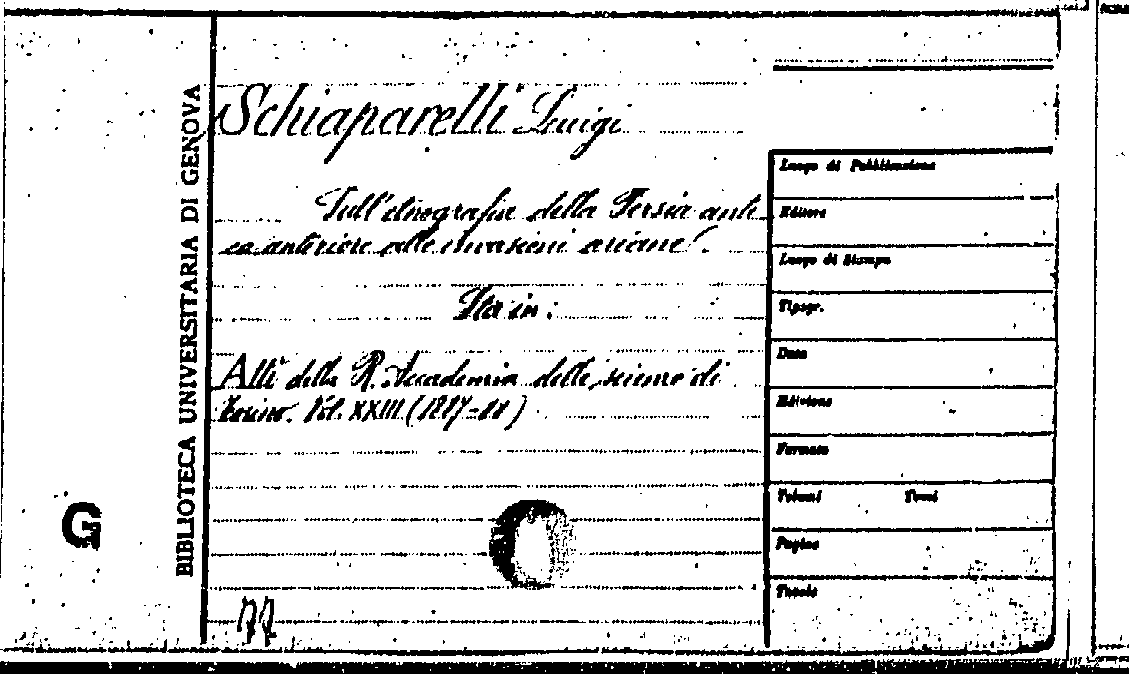 BIBLIOTECA UNIVERSITARIA DI GENOVA
G
Schiaparelli Luigi
Sull'etnografia della Persia anti
ca anteriore alle invasioni ariane.
Sta in:
Atti della R. Accademia delle scienze di
Torino. Vol. XXIII (1887-88)
Luogo di Pubblicazione
Editore
Luogo di Stampa
Tipogr.
Data
Edizione
Formato
Volumi Tomi
Pagine
Tavole